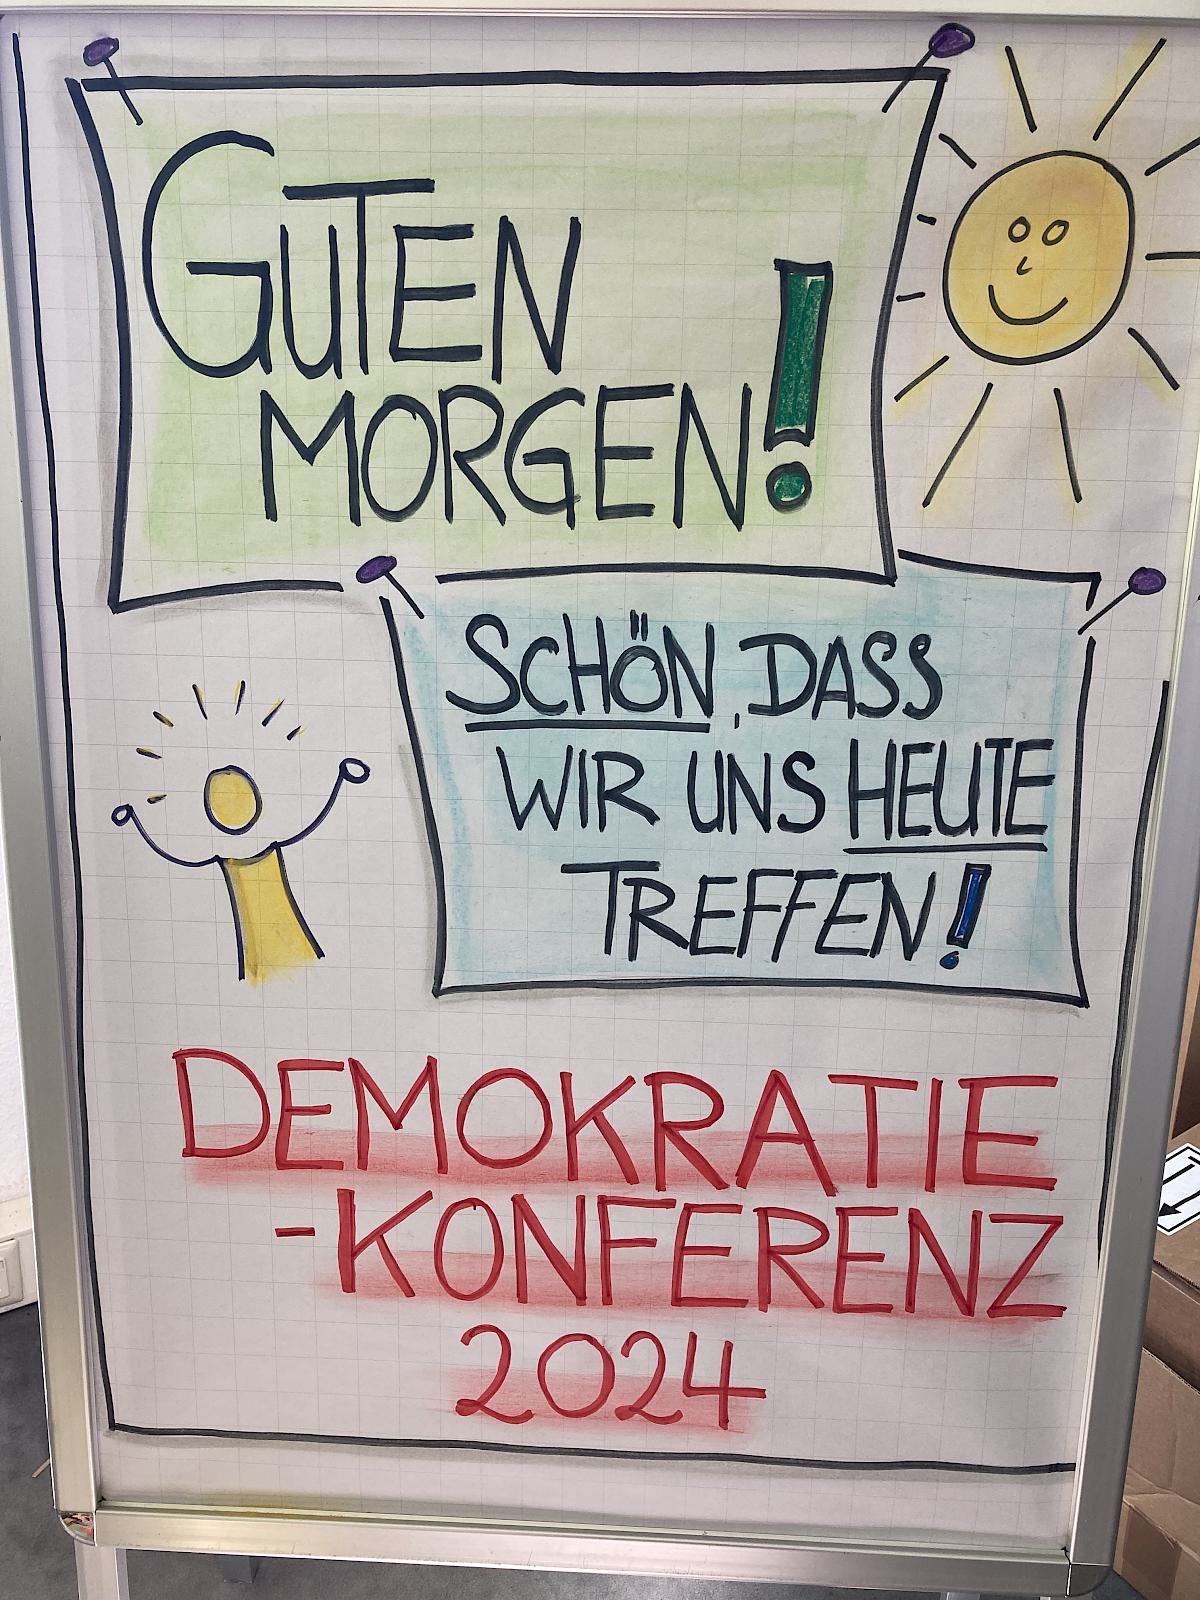 GUTEN
MORGEN!
SCHÖN, DASS
WIR UNS HEUTE
TREFFEN!
DEMOKRATIE
-KONFERENZ
2024